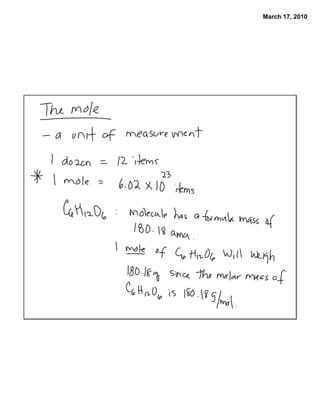 March 17, 2010
The mole
- a unit of measurement
1 dozen = 12 items
* 1 mole = 6.02 x 10²³ items
C₆H₁₂O₆ : molecule has a formula mass of
180.18 amu.
1 mole of C₆H₁₂O₆ will weigh
180.18g since the molar mass of
C₆H₁₂O₆ is 180.18 g/mol.